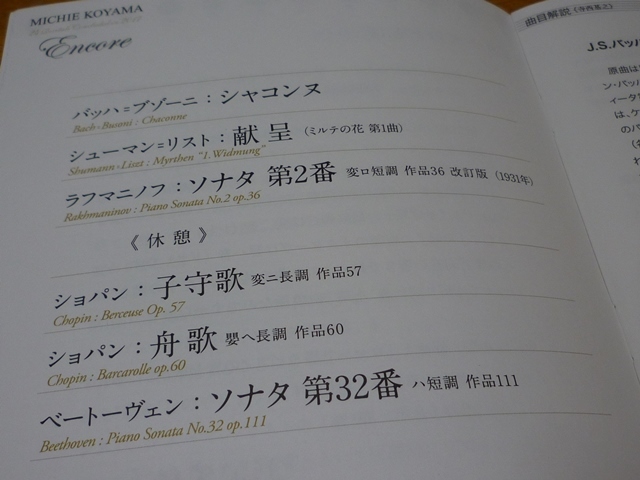 MICHIE KOYAMA
Encore
バッハ＝ブゾーニ：シャコンヌ
Bach=Busoni : Chaconne
シューマン＝リスト：献呈（ミルテの花 第1曲）
Shumann=Liszt : Myrthen "1. Widmung"
ラフマニノフ：ソナタ 第2番 変ロ短調 作品36 改訂版（1931年）
Rakhmaninov : Piano Sonata No.2 op.36
《 休 憩 》
ショパン：子守歌 変ニ長調 作品57
Chopin : Berceuse Op. 57
ショパン：舟歌 嬰ヘ長調 作品60
Chopin : Barcarolle op.60
ベートーヴェン：ソナタ 第32番 ハ短調 作品111
Beethoven : Piano Sonata No.32 op.111
曲目解説
J.S.バッハ
原曲は
ン・バッハ
ィータ
は、ケ
のバ